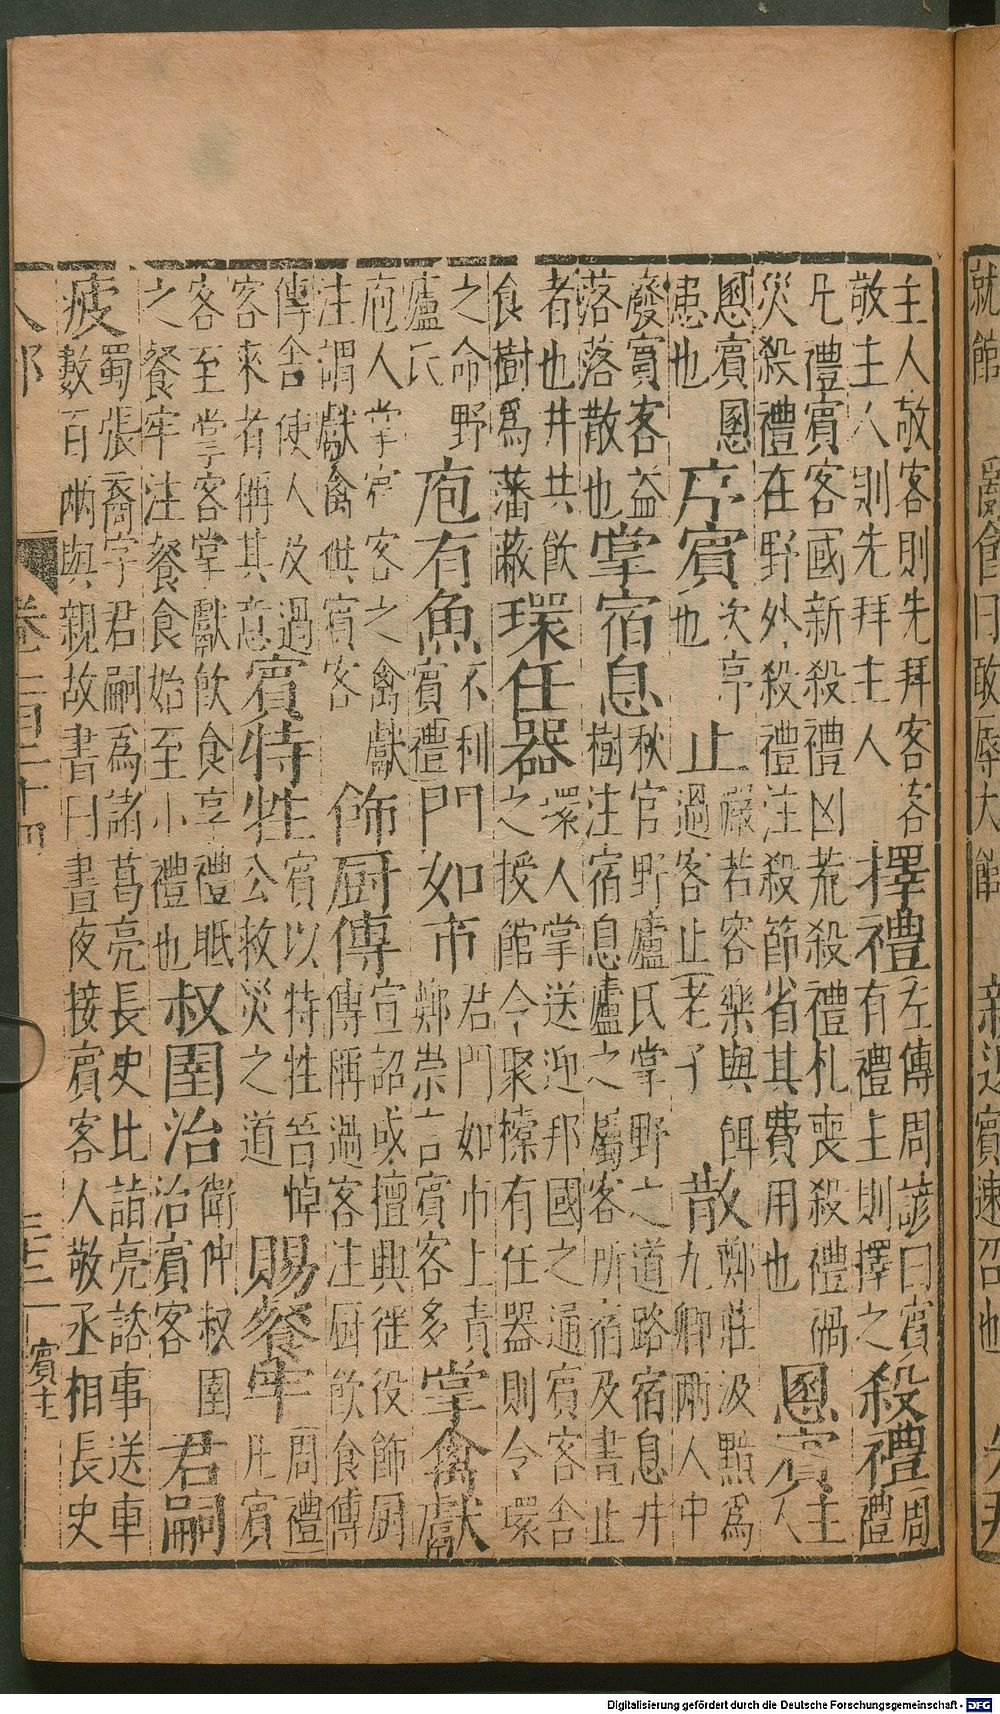 主人敬客則先拜客客敬主人則先拜主人擇禮左傳周諺曰賓有禮主則擇之殺禮周禮
凡禮賓客國新殺禮凶荒殺禮札喪殺禮禍災殺禮在野外殺禮注殺節省其費用也慁賓主人
慁賓慁患也序賓次序也止嚴若客樂與餌過客止老子散鄭莊汲黯為九卿兩人中
廢賓客益落落散也掌宿息秋官野廬氏掌野之道路宿息井樹注宿息廬之屬客所宿及晝止
者也井共飲食樹為藩蔽環任器環人掌送迎邦國之通賓客舍之授館令聚㯓有任器則令環
之命野廬氏庖有魚不利賓禮門如市君門如市上責鄭崇言賓客多掌禽獻
庖人掌賓客之禽獻注謂獻禽供賓客飾厨傳宣詔或擅興徭役飾厨傳稱過客注厨飲食傳
傳舍使人及過客來者稱其意賓特牲賓以特牲晉悼公救災之道賜餐牢周禮凡賓
客至掌客掌獻飲食享禮眂之餐牢注餐食始至小禮也叔圉治衛仲叔圉治賓客君嗣
疲蜀張裔字君嗣為諸葛亮長史比詣亮諮事送車數百兩與親故書曰晝夜接賓客人敬丞相長史
人部 卷三百二十四 賓主
Digitalisierung gefördert durch die Deutsche Forschungsgemeinschaft - DFG